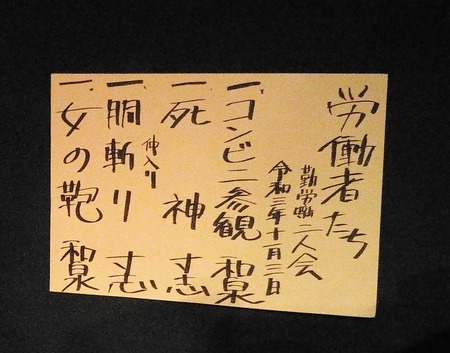 労働者たち
勤労働二人会
令和三年十一月三日
一、コンビニ参観 和泉
一、死神 丈志
仲入り
一、胴斬り 丈志
一、女の鞄 和泉